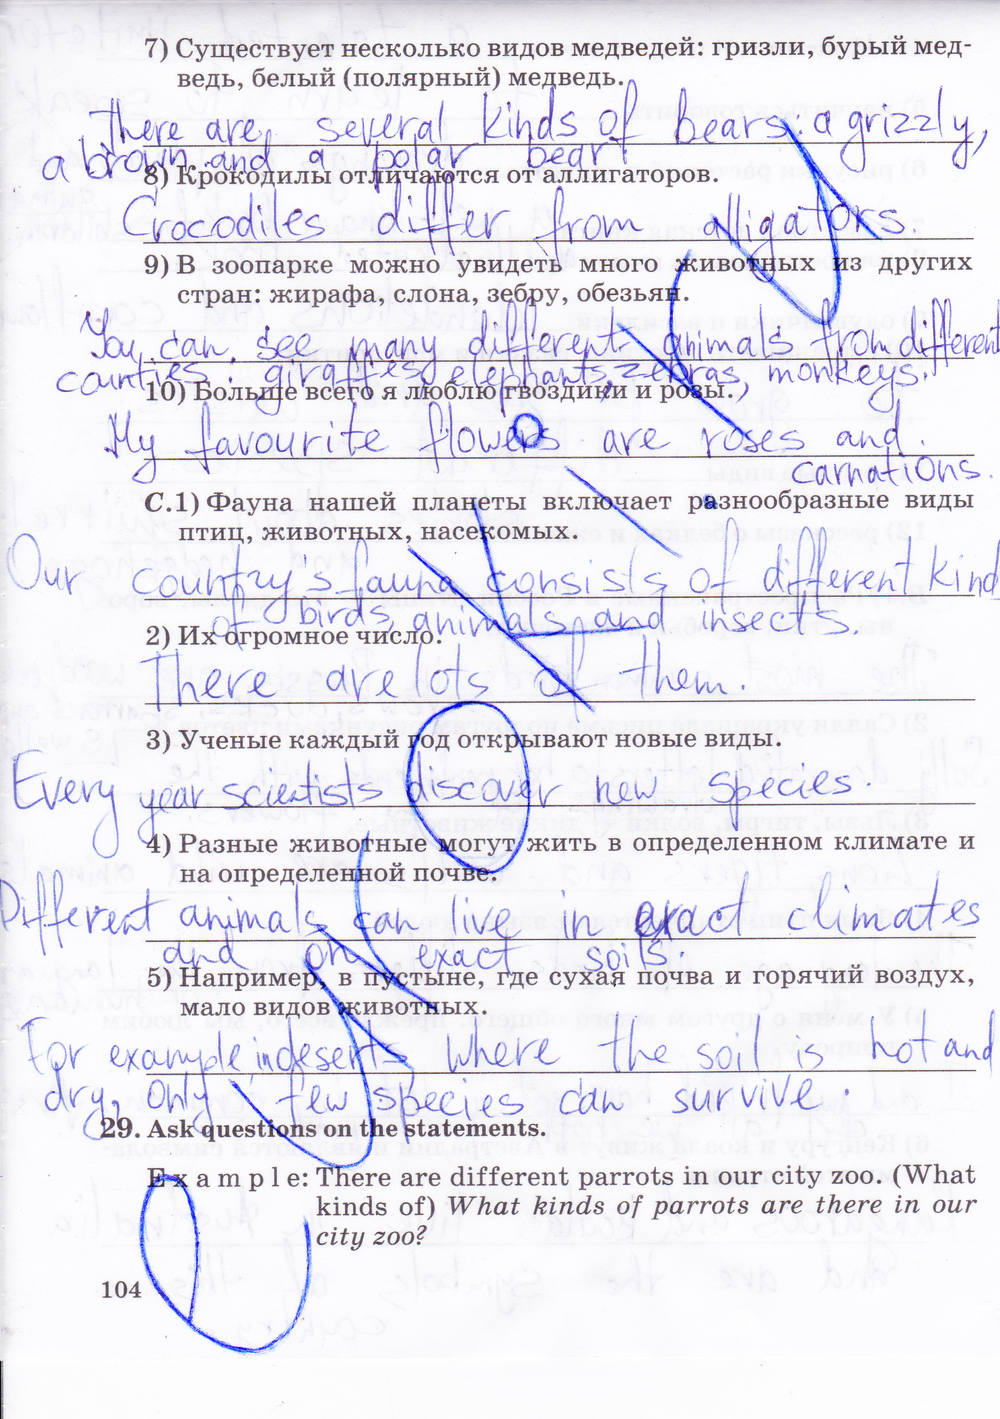 7) Существует несколько видов медведей: гризли, бурый мед-
ведь, белый (полярный) медведь.
There are several kinds of bears, a grizzly,
a brown and a polar bear.
8) Крокодилы отличаются от аллигаторов.
Crocodiles differ from alligators.
9) В зоопарке можно увидеть много животных из других
стран: жирафа, слона, зебру, обезьян.
You can see many different animals from different
counties: giraffies, elephants, zebras, monkeys.
10) Больше всего я люблю гвоздики и розы.
My favourite flowers are roses and
carnations.
C.1) Фауна нашей планеты включает разнообразные виды
птиц, животных, насекомых.
Our country's fauna consists of different kind
of birds, animals and insects.
2) Их огромное число.
There are lots of them.
3) Ученые каждый год открывают новые виды.
Every year scientists discover new species.
4) Разные животные могут жить в определенном климате и
на определенной почве.
Different animals can live in exact climates
and on exact soils.
5) Например, в пустыне, где сухая почва и горячий воздух,
мало видов животных.
For example, in deserts where the soil is hot and
dry, only few species can survive.
29. Ask questions on the statements.
Example: There are different parrots in our city zoo. (What
kinds of) What kinds of parrots are there in our
city zoo?
104